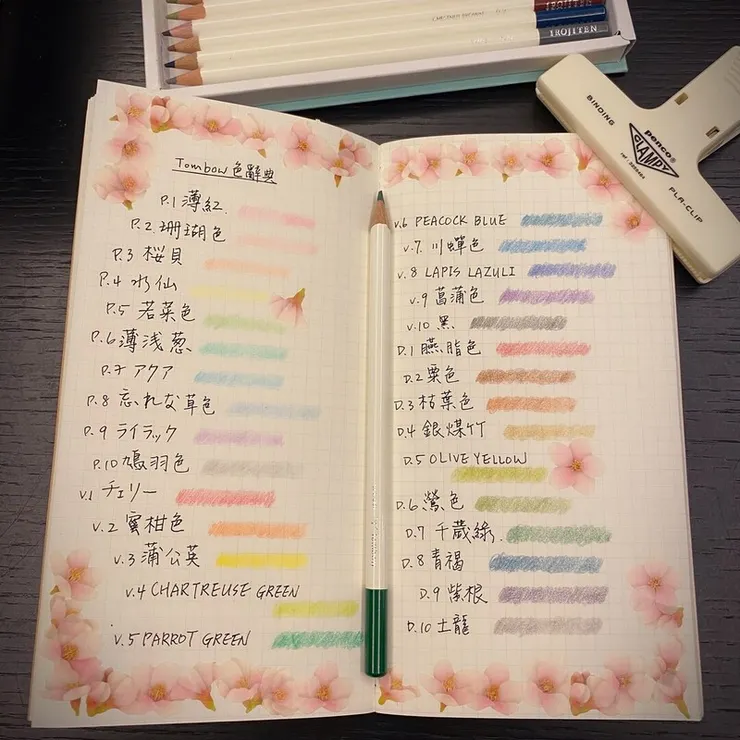 IROJITEN
BINDING
penco
CLAMPY
PLA-CLIP
Tombow色辭典
P.1 薄紅.
P.2 珊瑚色
P.3 桜貝
P.4 水仙
P.5 若菜色
P.6 薄浅葱
P.7 アクア
P.8 忘れな草色
P.9 ライラック
P.10 鳩羽色
V.1 チェリー
V.2 蜜柑色
V.3 蒲公英
V.4 CHARTREUSE GREEN
V.5 PARROT GREEN
V.6 PEACOCK BLUE
V.7. 川蟬色
V.8 LAPIS LAZULI
V.9 菖蒲色
V.10 黑
D.1 臙脂色
D.2 栗色
D.3 枯葉色
D.4 銀煤竹
D.5 OLIVE YELLOW
D.6 鶯色
D.7 千歳綠.
D.8 青褐
D.9 紫根
D.10 土龍